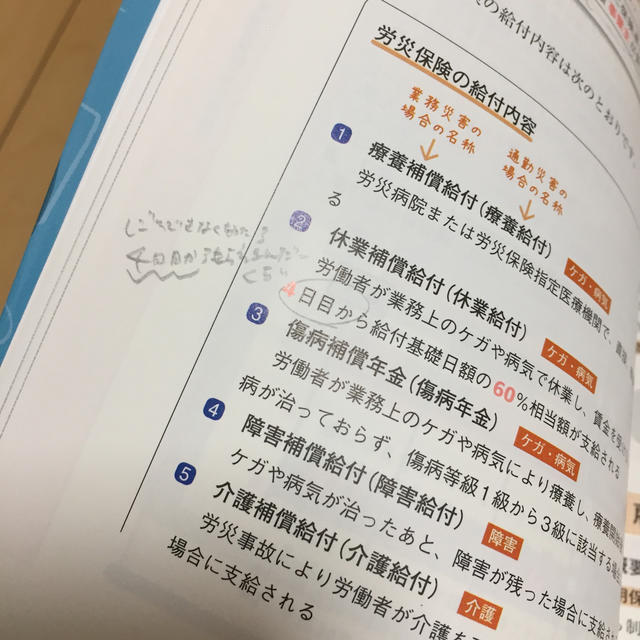 の給付内容は次のとおりです
労災保険の給付内容
業務災害の
場合の名称
通勤災害の
場合の名称
1 療養補償給付(療養給付) ケガ・病気
労災病院または労災保険指定医療機関で、
る
2 休業補償給付(休業給付) ケガ・病気
労働者が業務上のケガや病気で休業し、賃金を
4日目から給付基礎日額の60%相当額が支給される
3 傷病補償年金(傷病年金) ケガ・病気
労働者が業務上のケガや病気により療養し、療養開始
病が治っておらず、傷病等級1級から3級に該当する場合
4 障害補償給付(障害給付) 障害
ケガや病気が治ったあと、障害が残った場合に支給さ
5 介護補償給付(介護給付) 介護
労災事故により労働者が介護を
場合に支給される
4日目から